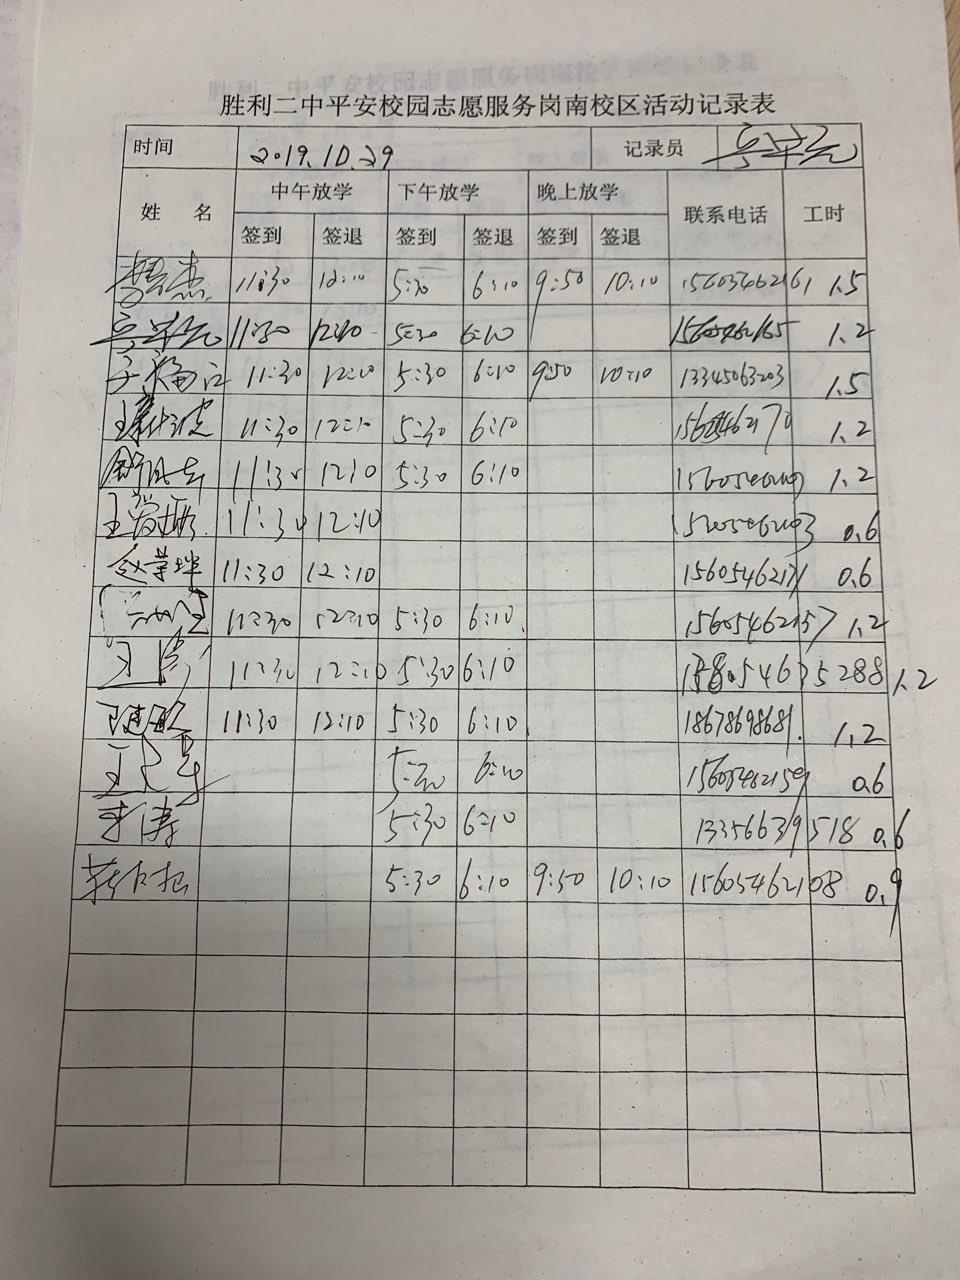 胜利二中平安校园志愿服务岗南校区活动记录表
时间 2019.10.29 记录员
姓 名 中午放学 下午放学 晚上放学 联系电话 工时
签到 签退 签到 签退 签到 签退
11:30 12:10 5:30 6:10 9:50 10:10 1.5
11:30 12:10 5:30 6:10 1.2
11:30 12:10 5:30 6:10 9:50 10:10 13345063203 1.5
11:30 12:10 5:30 6:10 1.2
11:30 12:10 5:30 6:10 1.2
11:30 12:10 0.6
赵荣坤 11:30 12:10 15605462171 0.6
11:30 12:10 5:30 6:10 15605462157 1.2
11:30 12:10 5:30 6:10 1.2
11:30 12:10 5:30 6:10 18678698681 1.2
5:30 6:10 15605462159 0.6
李涛 5:30 6:10 13356639518 0.6
5:30 6:10 9:50 10:10 15605462108 0.9